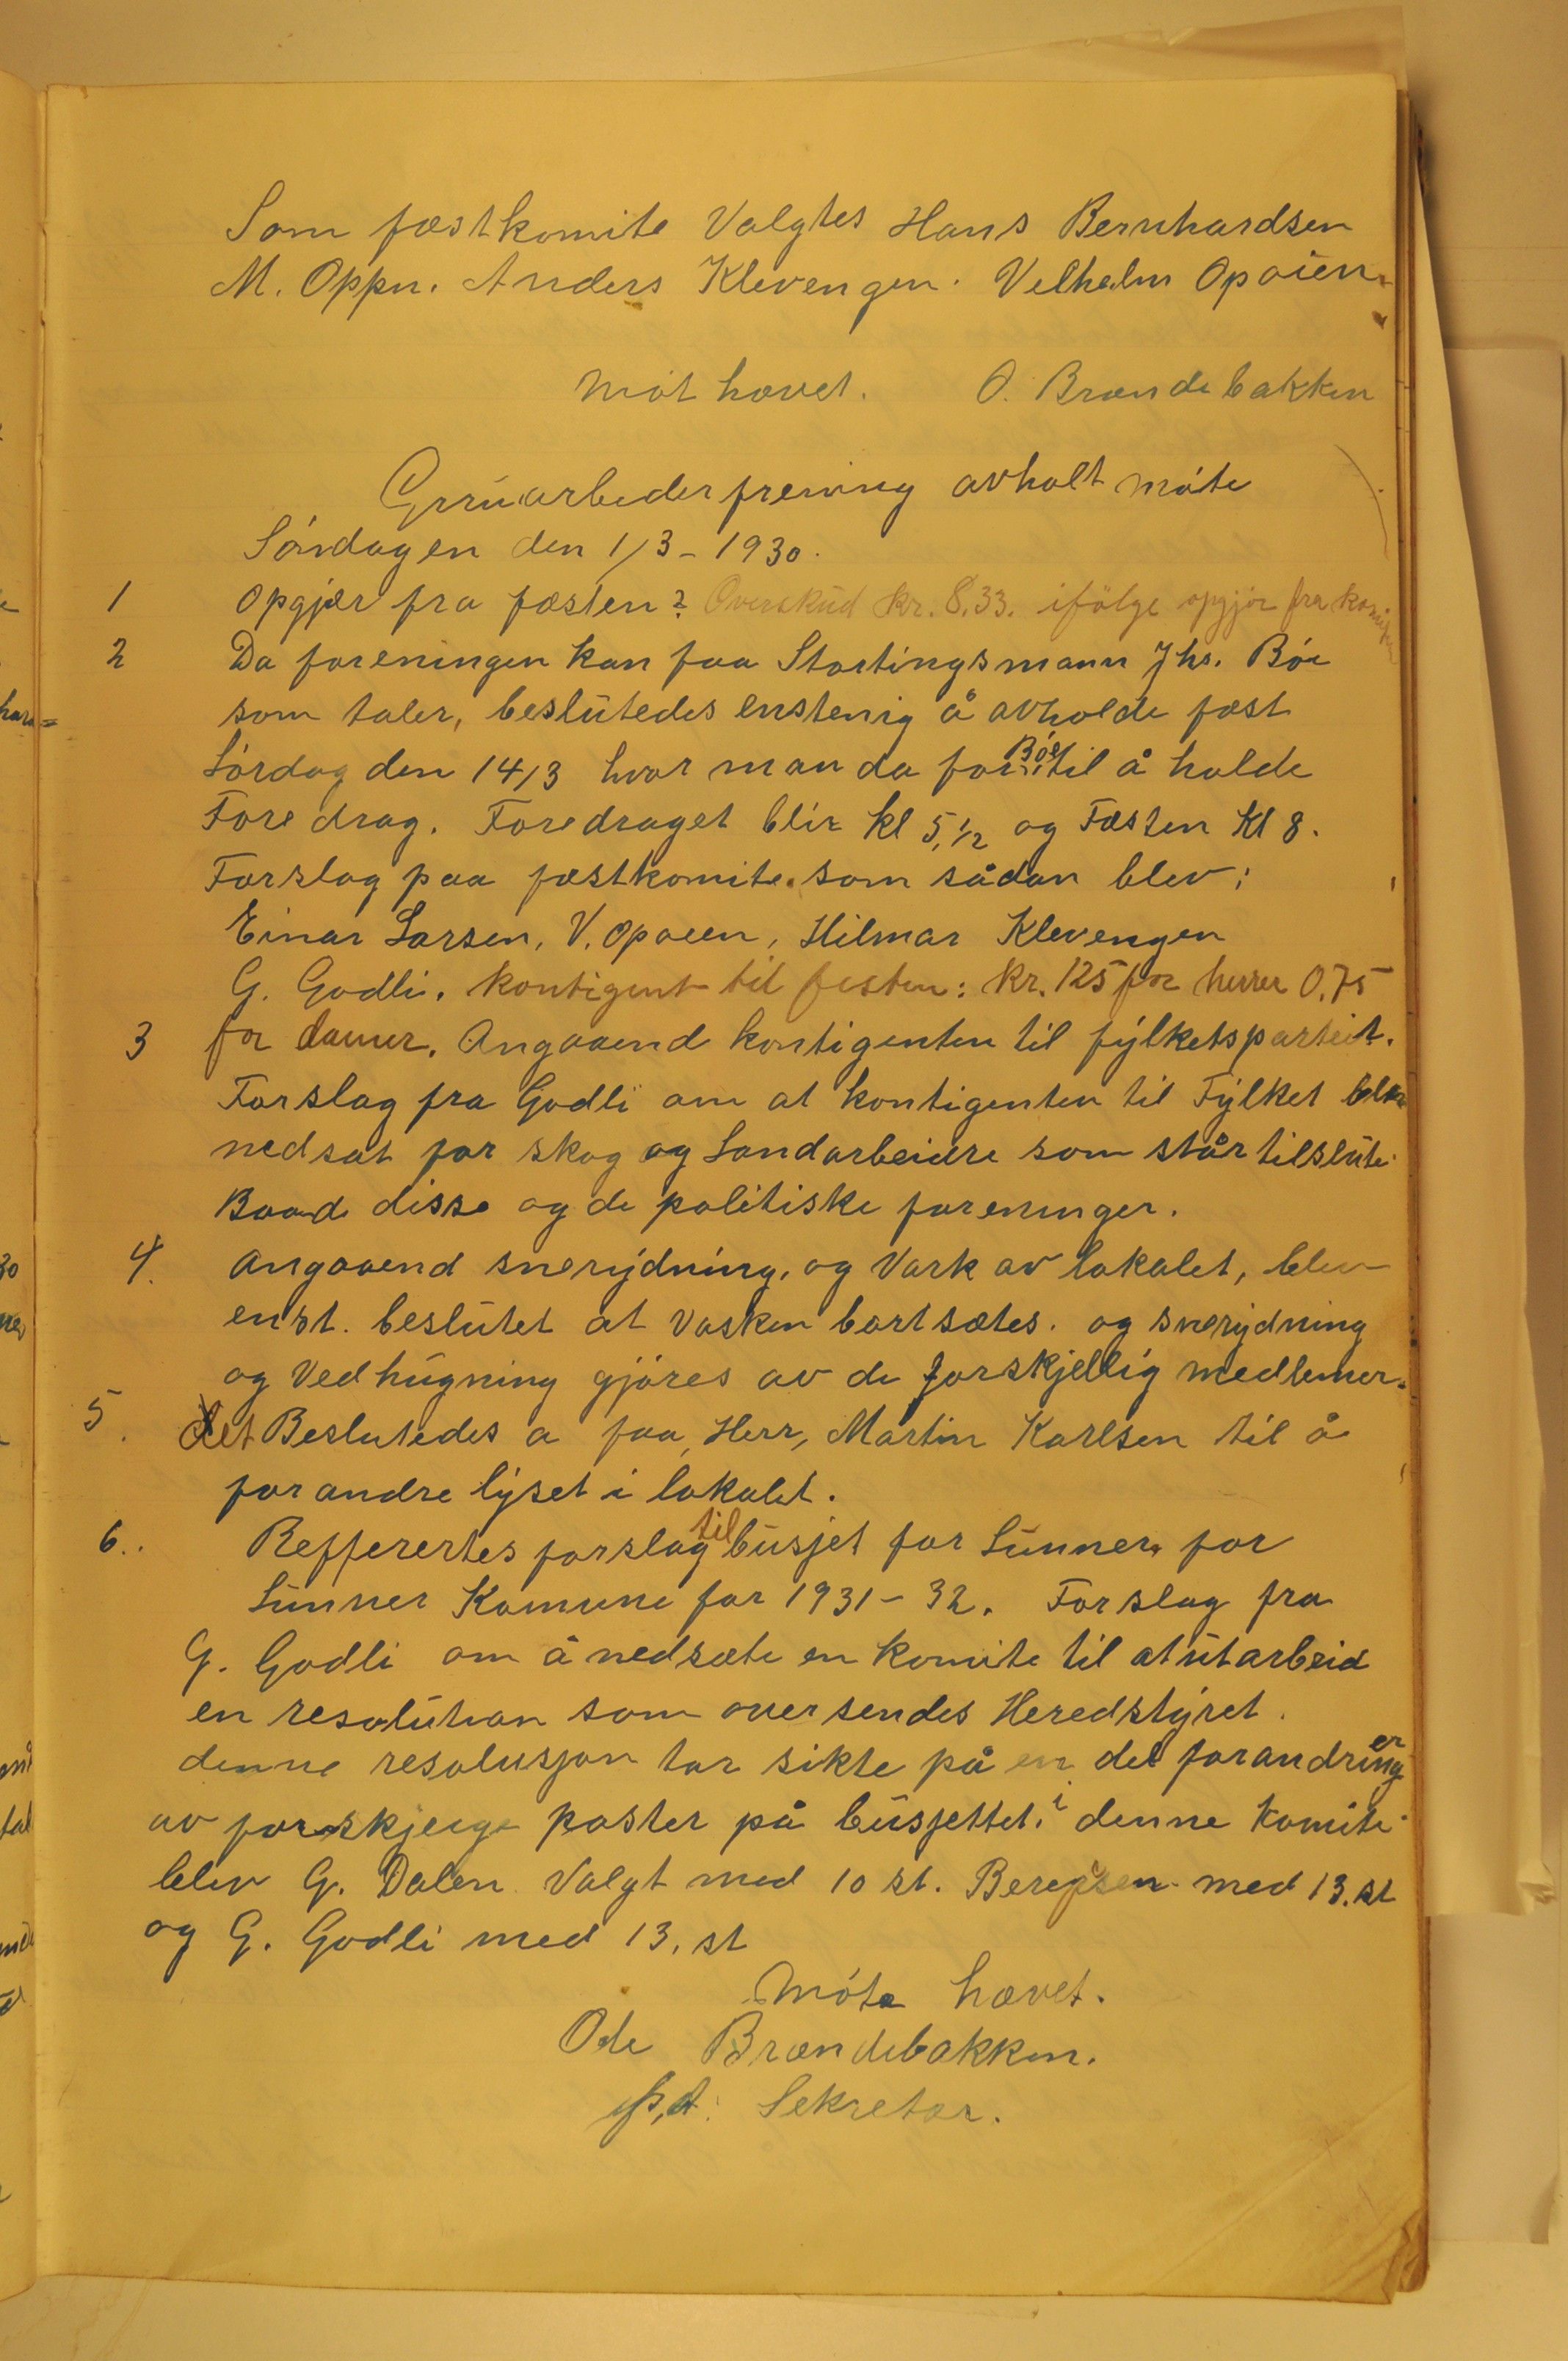 Som fæstkomite Valgtes Hans Bernhardsen
M. Oppn. Anders Klevengen. Velhelm Opaien.
Møt hævet. O. Brændebakken
Gruuarbeiderfrening avholt møte
Søndagen den 1/3 - 1930.
1 Opgjør fra fæsten? Overskud kr. 8.33. ifølge opgjør fra komiteen
2 Da foreningen kan faa Stortingsmann Jhs. Bøe
som taler, beslutedes enstemig å avholde fæst
Lørdag den 14/3 hvor man da for Bøe til å holde
Fore drag. Foredraget blir kl 5,1/2 og Fæsten Kl 8.
Forslag paa fæstkomite som sådan blev;
Einar Larsen, V. Opaeen, Hilmar Klevengen
G. Godli. Kontigent til festen: kr. 125 for herrer 0,75
3 for damer. Angaaend kontigenten til fylketspartiet.
Forslag fra Godli om at kontigenten til Fylket blev
nedsat for skog og Landarbeidre som står tilslute
Baade disse og de politiske foreninger.
4. Angaaend snerydning, og Vask av lokalet, blev
enst. beslutet at Vasken bortsætes. og snerydning
og Vedhugning gjøres av de forskjellig medlemer.
5. det Beslutedes a faa, Herr, Martin Karlsen til å
forandre lyset i lokalet.
6.. Refferertes forslag til busjet for Lunner for
Lunner Komune for 1931 - 32. Forslag fra
G. Godli om å nedsæte en komite til at utarbeid
en resolution som oversendes Heredstyret.
denne resolusjon tar sikte på en del forandringer
av forskjeige poster på busjettet. i denne Komite
blev G. Dalen Valgt med 10 st. med 13. st
og G. Godli med 13. st
Møte hævet.
Ole Brændebakken.
p,t. Sekretær.